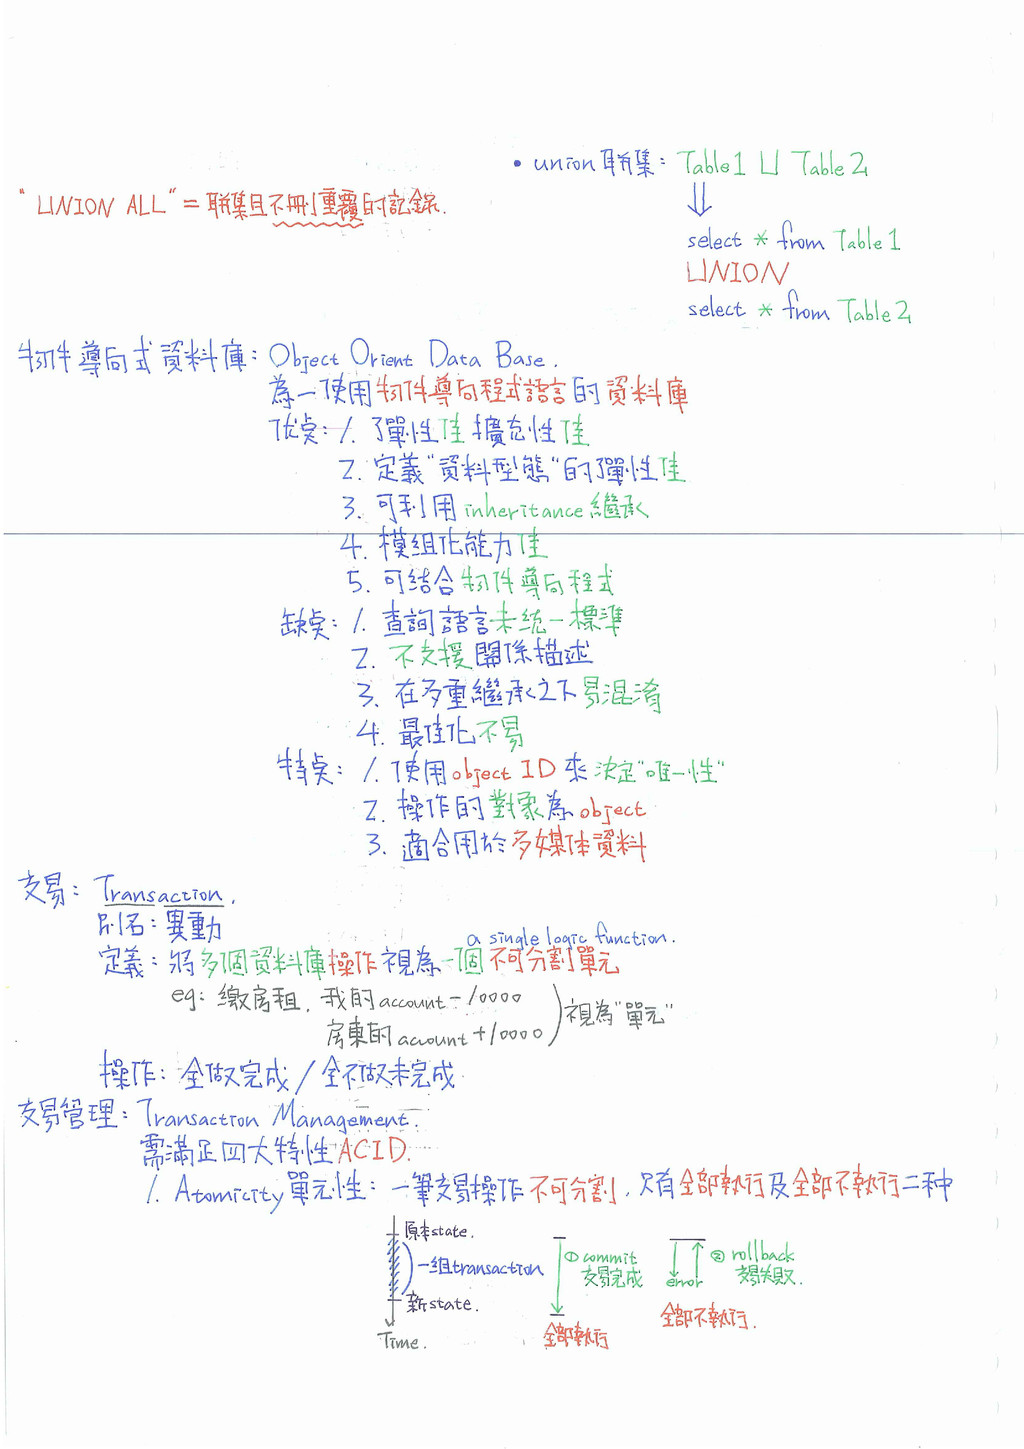 • union 聯集: Table 1 ∪ Table 2
"UNION ALL" = 聯集且不刪重覆的記錄.
select * from Table 1
UNION
select * from Table 2
物件導向式資料庫: Object Orient Data Base.
為一使用物件導向程式語言的資料庫
优点: 1. 彈性佳擴充性佳
2. 定義"資料型態"的彈性佳
3. 可利用inheritance繼承
4. 模組化能力佳
5. 可結合物件導向程式
缺点: 1. 查詢語言未統一標準
2. 不支援關係描述
3. 在多重繼承之下易混淆
4. 最佳化不易
特点: 1. 使用object ID來決定"唯一性"
2. 操作的對象為object
3. 適合用於多媒体資料
交易: Transaction.
別名: 異動
a single logic function.
定義: 將多個資料庫操作視為一個不可分割單元
eg: 繳房租, 我的account -10000
房東的account +10000 ) 視為"單元"
操作: 全做完成/全不做未完成
交易管理: Transaction Management.
需滿足四大特性ACID.
1. Atomicity單元性: 一筆交易操作不可分割, 只有全部執行及全部不執行二种
原本state.
一組transaction
新state.
Time.
① commit
交易完成
全部執行
② rollback
交易失敗.
error
全部不執行.